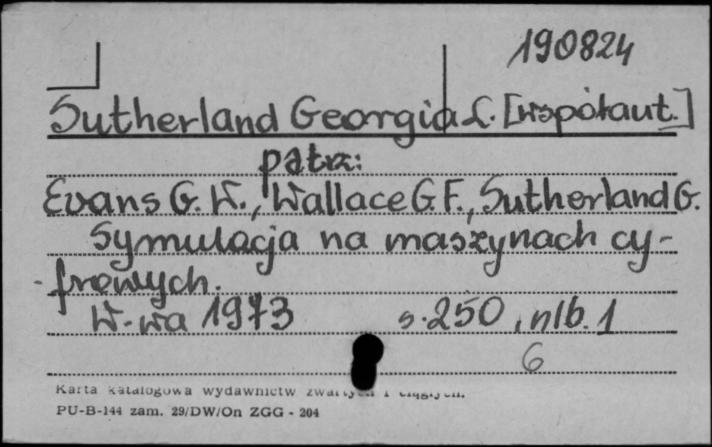 190824
Sutherland Georgia L. [współaut.]
patrz:
Evans G. W., Wallace G. F., Sutherland G.
Symulacja na maszynach cy-
frowych.
W-wa 1973 s. 250, nlb. 1
6
Karta katalogowa wydawnictw zwartych i ciągłych.
PU-B-144 zam. 29/DW/On ZGG - 204